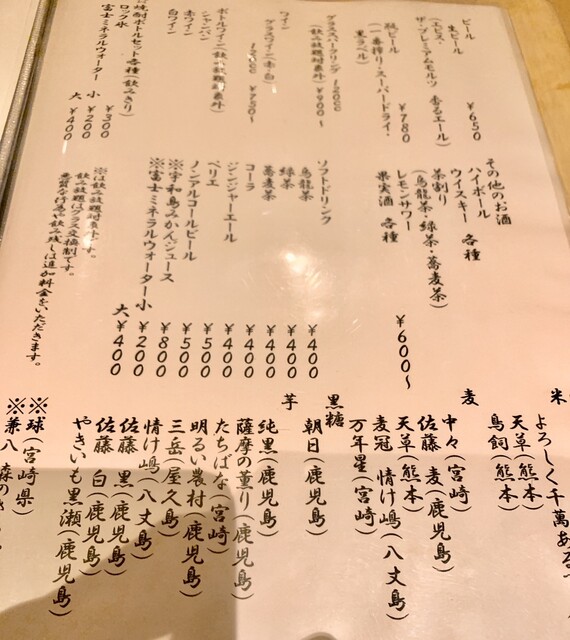 ビール
生ビール ¥650
(エビス・
ザ・プレミアムモルツ 香るエール)
瓶ビール ¥780
(一番搾り・スーパードライ・
黒ラベル)
グラススパークリング 120cc
(飲み放題対象外) ¥900〜
ワイン
グラスワイン(赤・白)
120cc ¥750〜
ボトルワイン(飲み放題対象外)
シャンパン
赤ワイン
白ワイン
焼酎ボトルセット各種(飲みきり)
ロック氷 ¥300
富士ミネラルウォーター 小 ¥200
大 ¥400
その他のお酒
ハイボール
ウイスキー 各種
茶割り
(烏龍茶・緑茶・蕎麦茶)
レモンサワー
果実酒 各種
¥600〜
ソフトドリンク
烏龍茶 ¥400
緑茶 ¥400
蕎麦茶 ¥400
コーラ ¥400
ジンジャーエール ¥400
ペリエ ¥500
ノンアルコールビール ¥500
※宇和島みかんジュース ¥800
※富士ミネラルウォーター 小 ¥200
大 ¥400
※は飲み放題対象外です。
飲み放題はグラス交換制です。
悪質な行為や飲み残しは追加料金をいただきます。
米
よろしく千萬ある
天草(熊本)
鳥飼(熊本)
麦
中々(宮崎)
佐藤 麦(鹿児島)
天草(熊本)
麦冠 情け嶋(八丈島)
万年星(宮崎)
黒糖
朝日(鹿児島)
芋
純黒(鹿児島)
薩摩の薫り(鹿児島)
たちばな(宮崎)
明るい農村(鹿児島)
三岳(屋久島)
情け嶋(八丈島)
佐藤 黒(鹿児島)
佐藤 白(鹿児島)
やきいも黒瀬(鹿児島)
※球(宮崎県)
※兼八 森の